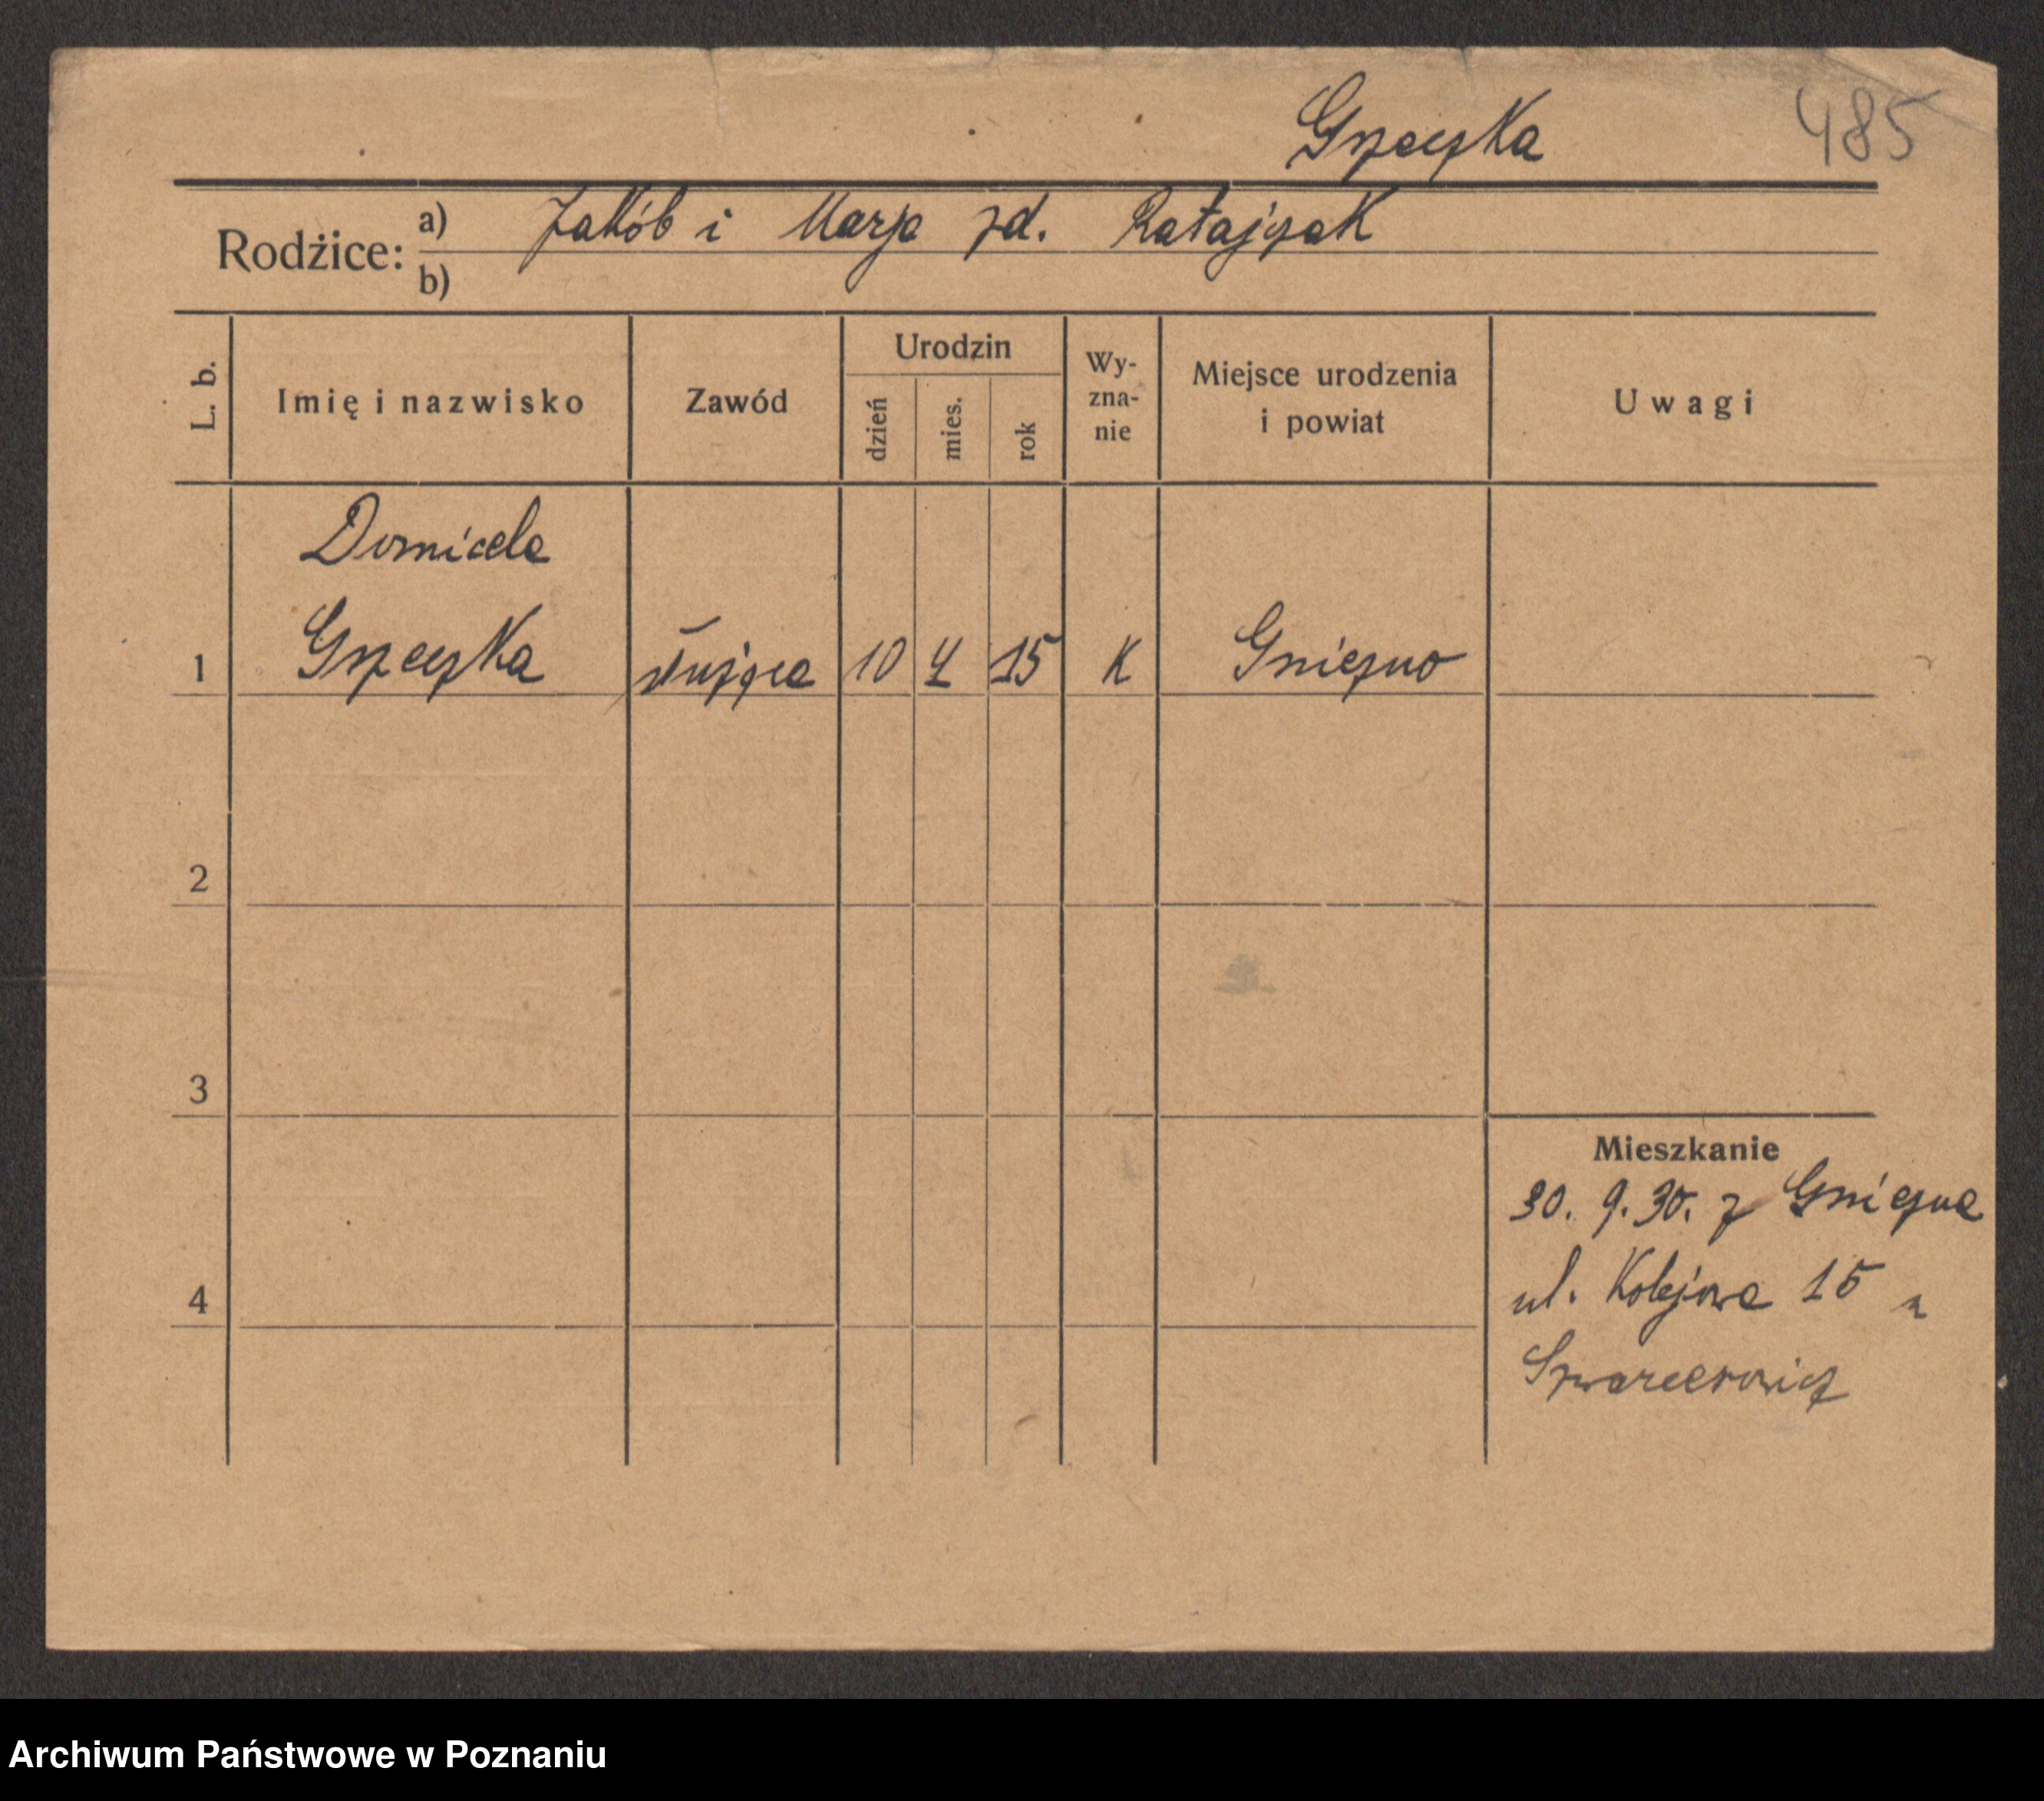 Grzeczka 485
Rodżice: a) Jakób i Marja zd. Ratajczak
b)
L. b. Imię i nazwisko Zawód Urodzin dzień mies. rok Wy-zna-nie Miejsce urodzenia i powiat Uwagi
Domicela
1 Grzeczka służąca 10 4 15 K Gniezno
2
3
Mieszkanie
30. 9. 30. z Gniezna
ul. Kolejowa 15 u
4
Szwarcerowicz
Archiwum Państwowe w Poznaniu